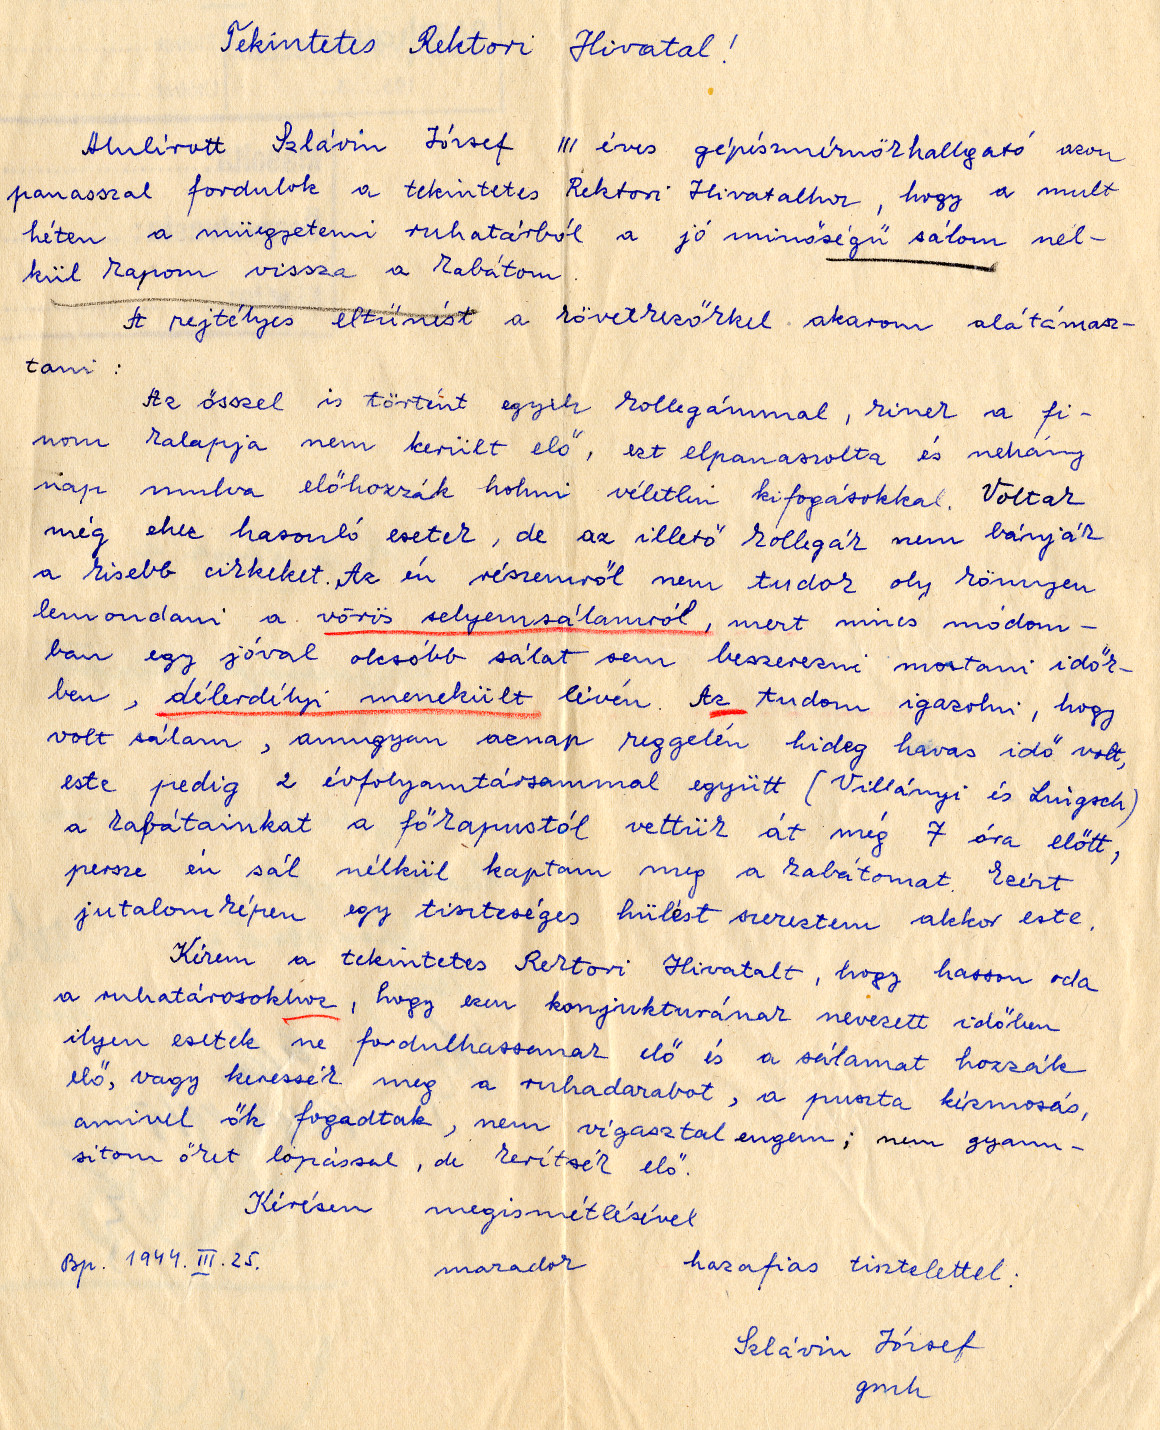 Tekintetes Rektori Hivatal!
Alulírott Szlávin József III éves gépészmérnökhallgató azon
panasszal fordulok a tekintetes Rektori Hivatalhoz, hogy a mult
héten a műegyetemi ruhatárból a jó minőségű sálom nél-
kül kapom vissza a kabátom.
A rejtélyes eltünést a következőkkel akarom alátámasz-
tani:
Az ősszel is történt egyik kollegámmal, kinek a fi-
nom kalapja nem került elő, ezt elpanaszolta és nehány
nap mulva előhozzák holmi véletlen kifogásokkal. Voltak
még ehez hasonló esetek, de az illető kollegák nem bánják
a kisebb cikkeket. Az én részemről nem tudok oly könnyen
lemondani a vörös selyemsálamról, mert nincs módom-
ban egy jóval olcsóbb sálat sem beszerezni mostani idők-
ben, délerdélyi menekült lévén. Az tudom igazolni, hogy
volt sálam, amugyan aznap reggelén hideg havas idő volt,
este pedig 2 évfolyamtársammal együtt (Villányi és Luigsch)
a kabátainkat a főkapustól vettük át még 7 óra előtt,
persze én sál nélkül kaptam meg a kabátomat. Ezért
jutalomképen egy tisztességes hülést szereztem akkor este.
Kérem a tekintetes Rektori Hivatalt, hogy hasson oda
a ruhatárosokhoz, hogy ezen konjukturának nevezett időben
ilyen esetek ne fordulhassanak elő és a sálamat hozzák
elő, vagy keressék meg a ruhadarabot, a puszta kézmosás,
amivel ők fogadtak, nem vigasztal engem; nem gyanu-
sitom őket lopással, de kerítsék elő.
Kérésem megismétlésével
Bp. 1944. III. 25. maradok hazafias tisztelettel:
Szlávin József
gmh